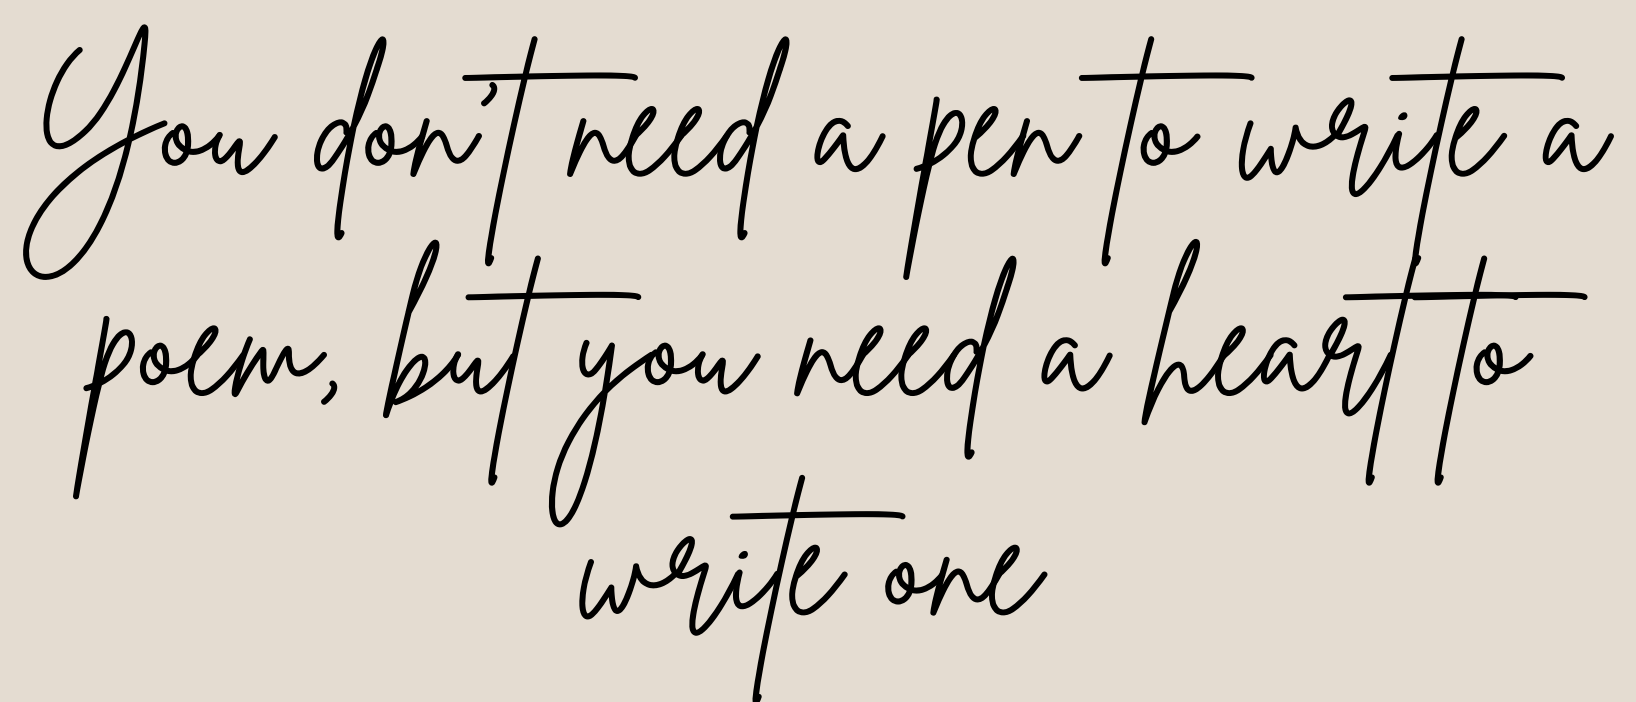 You don't need a pen to write a
poem, but you need a heart to
write one